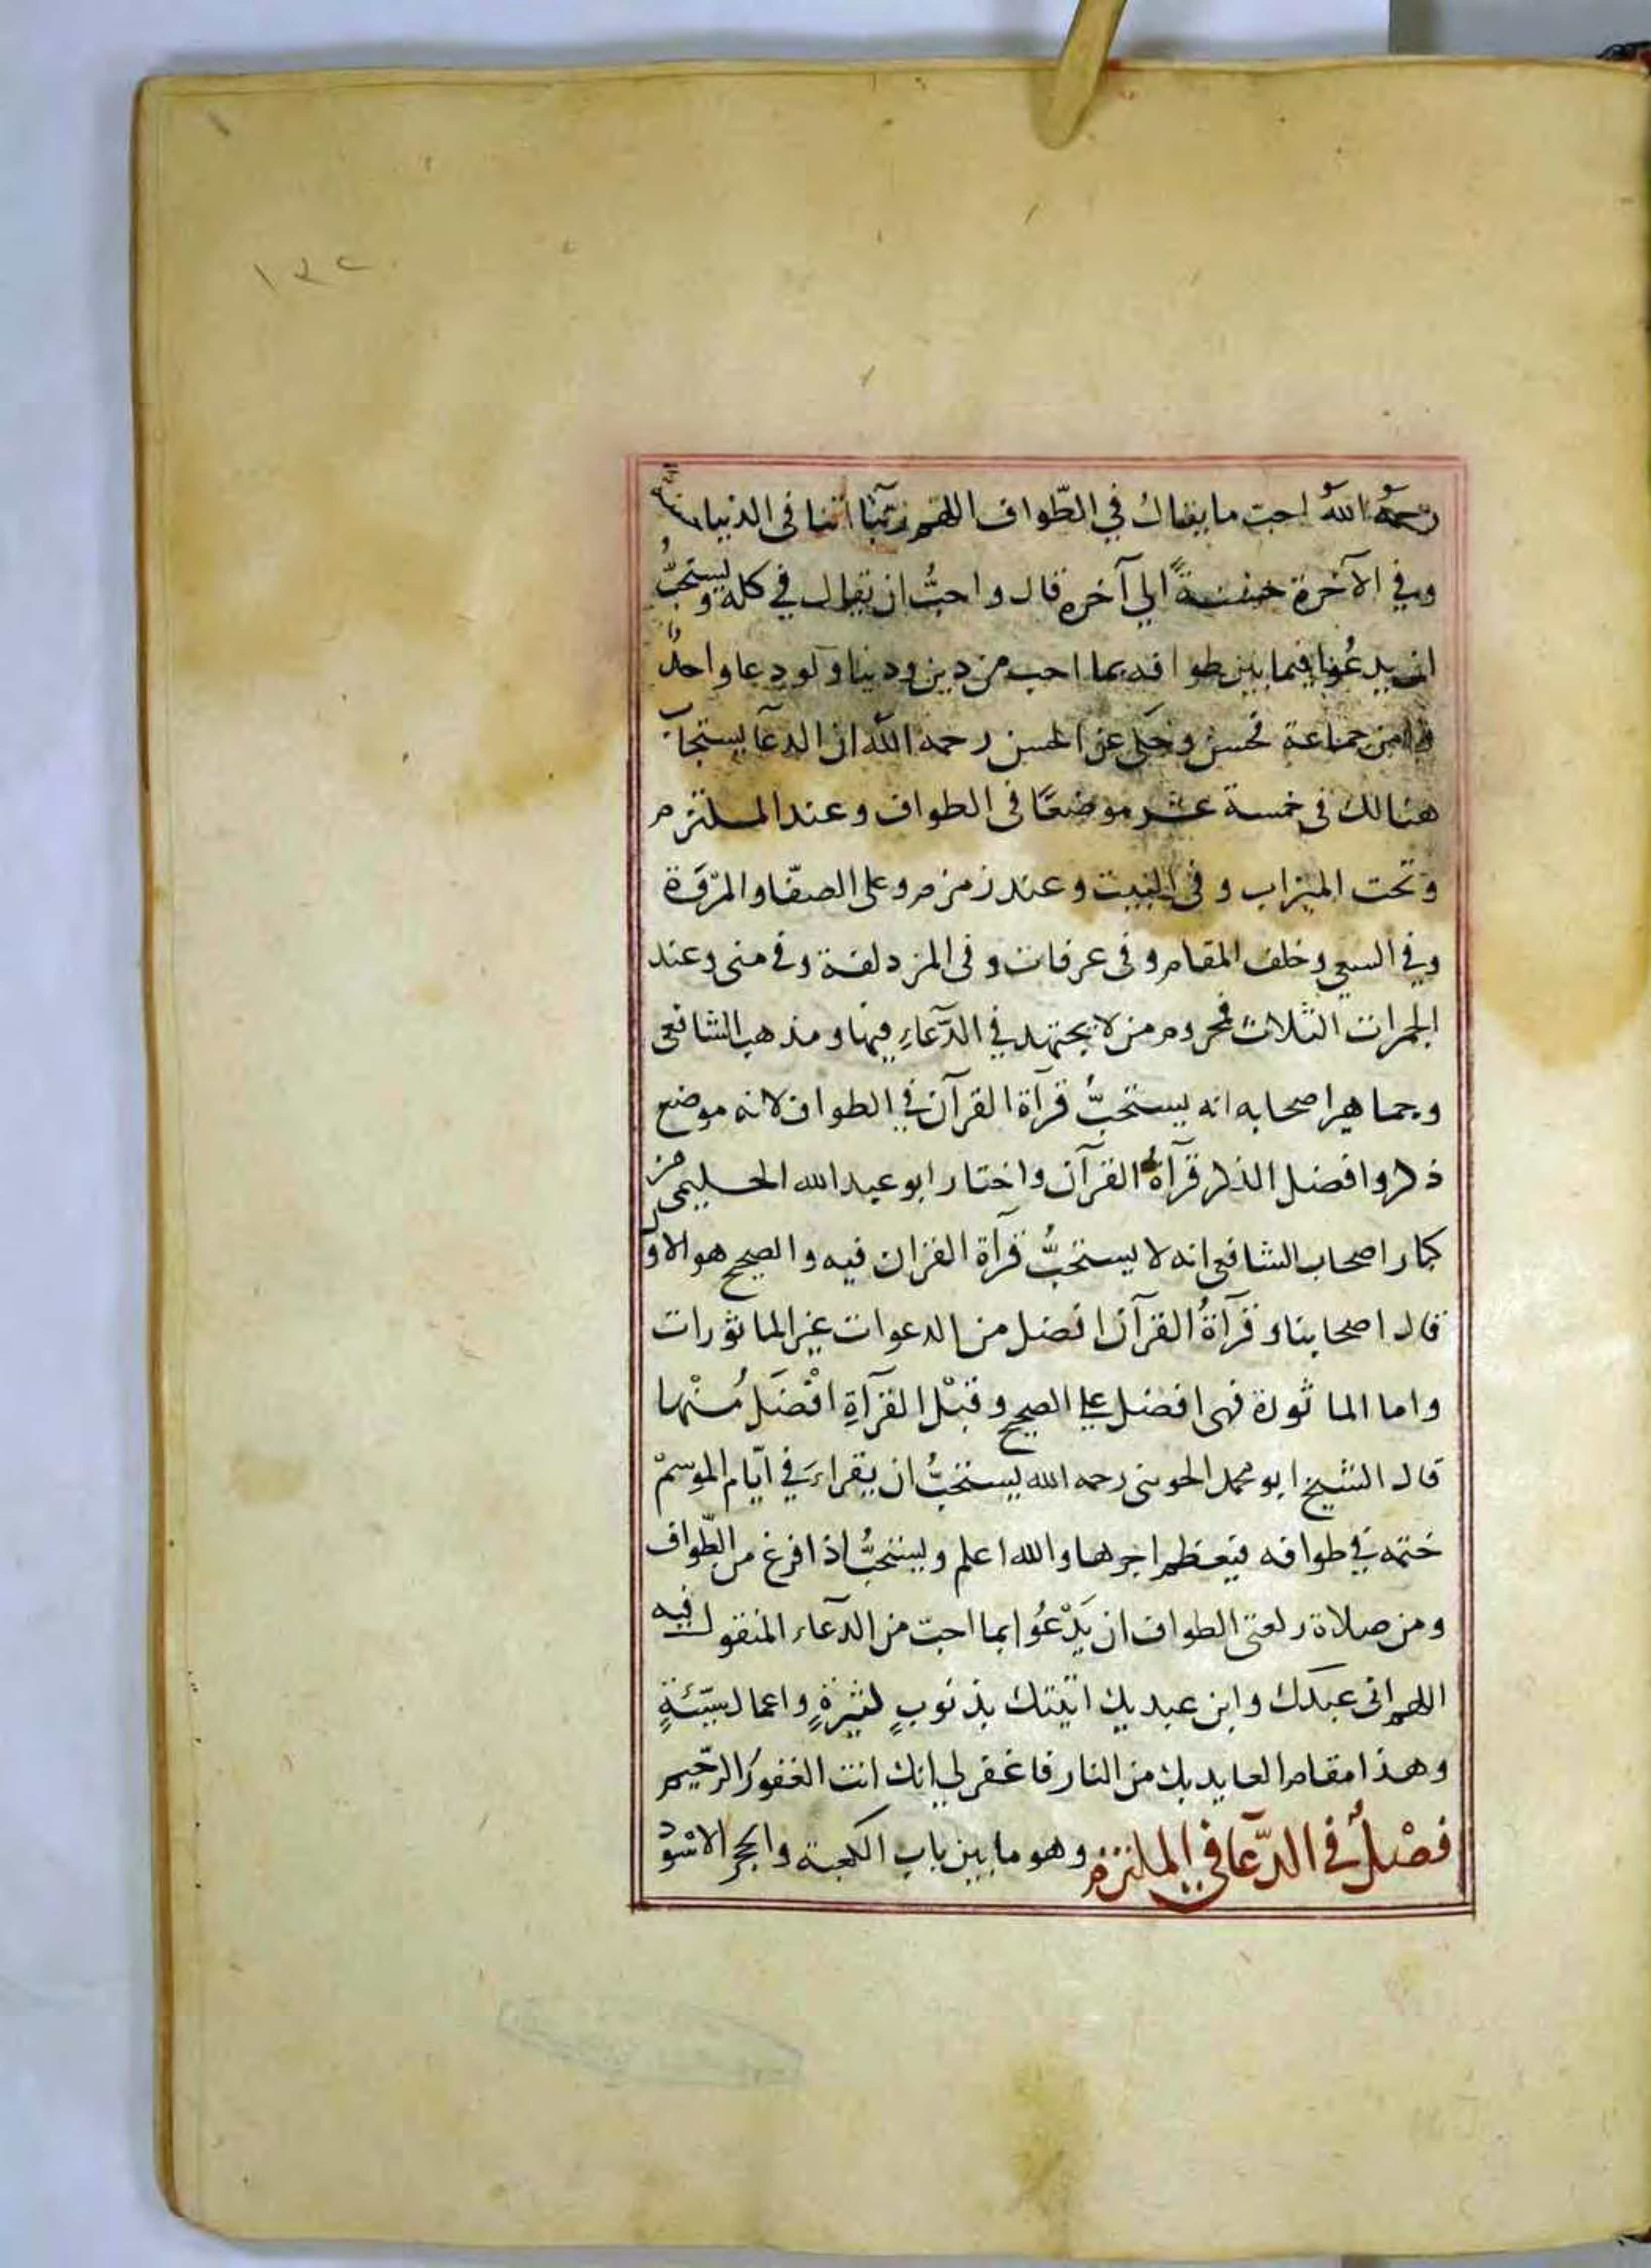 ١٣٢
رحمه الله احب ما يقال في الطواف اللهم ربنا اتنا فى الدنيا حسنة
وفي الآخرة حسنةً الى آخره قال واحبُّ ان يقال في كله ويستحبُّ
ان يدعُوا فيما بين طوافه بما احب من دين ودنيا ولو دعا واحدٌ
وامن جماعة فحسن وحكى عن الحسن رحمه الله ان الدعآ يستجاب
هنالك فى خمسة عشر موضعًا فى الطواف وعند الملتزم
وتحت الميزاب وفى البيت وعند زمزم وعلى الصفا والمروة
وفي السعي وخلف المقام وفى عرفات وفى المزدلفة وفى منى وعند
الجمرات الثلاث فمحروم من لا يجتهد في الدّعآءِ فيها ومذهب الشافعى
وجماهير اصحابه انه يستحبُّ قرآة القرآن في الطواف لانه موضع
ذكر وافضل الذكر قرآةُ القرآن واختار ابو عبد الله الحليمى من
كبار اصحاب الشافعى انه لا يستحبُّ قرآة القران فيه والصحيح هو الاول
قال اصحابنا وقرآةُ القرآن افضل من الدعوات غير الماثورات
واما الماثورة فهى افضل على الصحيح وقيْل القرآةِ افْضَلُ مُنْها
قال الشيخ ابو محمد الجوينى رحمه الله يستحبُّ ان يقراءَ في ايّام الموسمْ
ختمه في طوافه فيعظم اجرها والله اعلم ويستحبُّ اذا فرغ من الطّواف
ومن صلاة ركعتى الطواف ان يَدْعُوا بما احبّ من الدّعآء المنقول فيه
اللهم انى عبدك وابن عبديك اتيتك بذنوبٍ كثيرةٍ واعمال سيّئةٍ
وهذا مقام العايد بك من النار فاغفر لى انك انت الغفورُ الرّحيم
فصْلٌ في الدّعآ في الملتزم وهو ما بين باب الكعبة والحجر الاسود